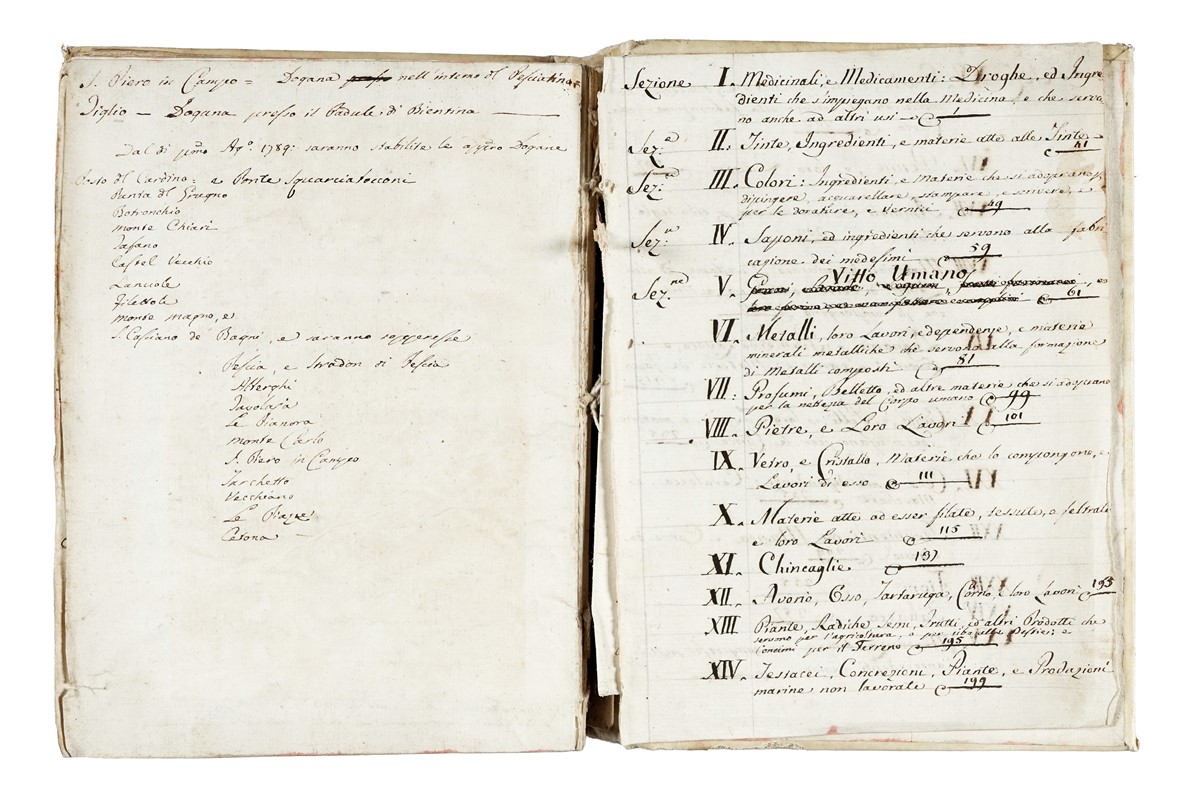 S. Piero in Campo = Dogana presso nell'interno del Pesciatino =
Tiglio — Dogana presso il Padule di Bientina
Dal dì primo Ago. 1789: saranno stabilite le appro Dogane
Posto del Cardino = e Ponte Squarciabocconi
Punta del Grugno
Botronchio
Monte Chiari
Tafano
Castel Vecchio
Lanciole
Filettole
Monte Magno, e
S. Casciano de Bagni, e saranno soppresse
Pescia, e Stradon di Pescia
Alberghi
Tavolaja
Le Pianora
Monte Carlo
S. Piero in Campo
Tarchetto
Vecchiano
Le Piazze
Cetona —
Sezione I. Medicinali, e Medicamenti: Droghe, ed Ingre
dienti che s'impiegano nella Medicina, e che servo
no anche ad altri usi — 1
Sez.e II. Tinte, Ingredienti, e materie atte alle Tinte — 41
Sez.e III. Colori: Ingredienti, e Materie che si adoprano p.
dipingere, acquarellare, stampare, e scrivere, e
per le dorature, e Vernici 49
Sez.e IV. Saponi, ed ingredienti che servono alla fabri
cazione dei medesimi 59
Sez.ne V. Vitto Umano
61
VI. Metalli, loro Lavori, e dependenze, e materie
minerali metalliche che servono alla formazione
di Metalli composti 81
VII: Profumi, Belletto, ed altre materie che si adoprano
per la nettezza del Corpo umano 99
VIII. Pietre, e Loro Lavori 101
IX. Vetro, e Cristallo, Materie che lo compongono, e
Lavori di esso 111
X. Materie atte ad esser filate, tessute, o feltrate
e loro Lavori 115
XI. Chincaglie 137
XII. Avorio, Osso, Tartaruga, Corno, e loro Lavori 193
XIII Piante, Radiche, Semi, Frutti, ed altri Prodotti che
servono per l'agricoltura, o per cibo alle Bestie; e
Concimi per il Terreno 195
XIV. Testacei, Concrezioni, Piante, e Produzioni
marine non lavorate 199